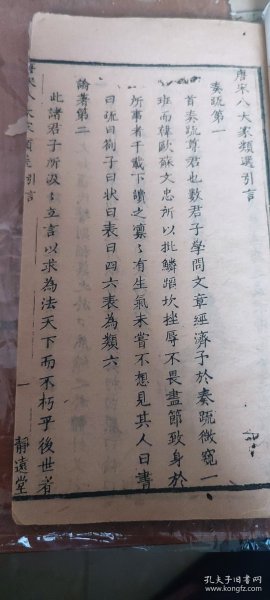 唐宋八大家類選引言
奏疏第一
首奏疏尊君也數君子學問文章經濟予於奏疏微窺一
班而韓歐蘇文忠所以批鱗蹈坎挫辱不畏盡節致身於
所事者千載下讀之凛〻有生氣未嘗不想見其人曰書
曰疏曰劄子曰狀曰表曰四六表為類六
論著第二
此諸君子所汲〻立言以求為法天下而不朽乎後世者
唐宋八大家類選 引言
一
靜遠堂
孔夫子旧书网